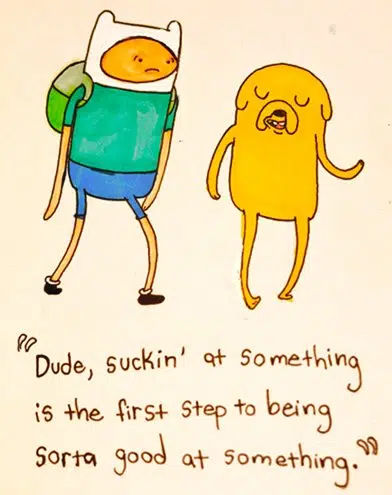 "Dude, suckin' at something
is the first step to being
sorta good at something."